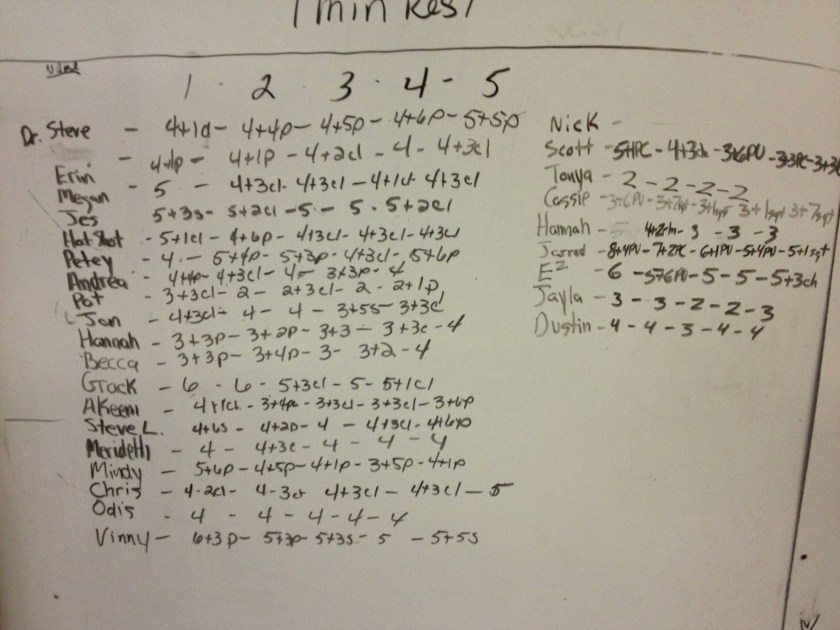 1 min Rest
1 - 2 3 - 4 - 5
Dr. Steve - 4+1cl - 4+4p - 4+5p - 4+6p - 5+5p
- 4+1p - 4+1p - 4+2cl - 4 - 4+3cl
Erin - 5 - 4+3cl - 4+3cl - 4+1cl - 4+3cl
Megan
Jes 5+3s - 5+2cl - 5 - 5 - 5+2cl
Hot Shot - 5+1cl - 4+6p - 4+3cl - 4+3cl - 4+3cl
Petey - 4 - 5+4p - 5+3p - 4+3cl - 5+6p
Andrea - 4+4p - 4+3cl - 4 - 3+3p - 4
Pat - 3+3cl - 2 - 2+3cl - 2 - 2+1p
Jon - 4+3cl - 4 - 4 - 3+5s - 3+3c
Hannah - 3+3p - 3+2p - 3+3 - 3+3c - 4
Becca - 3+3p - 3+4p - 3 - 3+2 - 4
Grack - 6 - 6 - 5+3cl - 5 - 5+1cl
AKeem - 4+1cl - 3+4p - 3+3cl - 3+3cl - 3+6p
Steve L. 4+6s - 4+2p - 4 - 4+3cl - 4+6p
Merideth - 4 - 4+3c - 4 - 4 - 4
Mindy - 5+6p - 4+5p - 4+1p - 3+5p - 4+1p
Chris - 4-2cl - 4-3cl 4+3cl - 4+3cl - 5
Odis - 4 - 4 - 4 - 4 - 4
Vinny - 6+3p - 5+3p - 5+3s - 5 - 5+5s
Nick -
Scott - 5+1PC - 4+3ch - 3+6PU - 3+3PC - 3+3
Tanya - 2 - 2 - 2 - 2
Cassip - 3+6PU - 3+7sqt - 3+1sqt 3+1sqt 3+7sqt
Hannah - 5 4+2ch - 3 - 3 - 3
Jarrod - 8+4PU - 7+2PC - 6+1PU - 5+4PU - 5+1sqt
E² - 6 - 5+6PU - 5 - 5 - 5+3ch
Jayla - 3 - 3 - 2 - 2 - 3
Dustin - 4 - 4 - 3 - 4 - 4